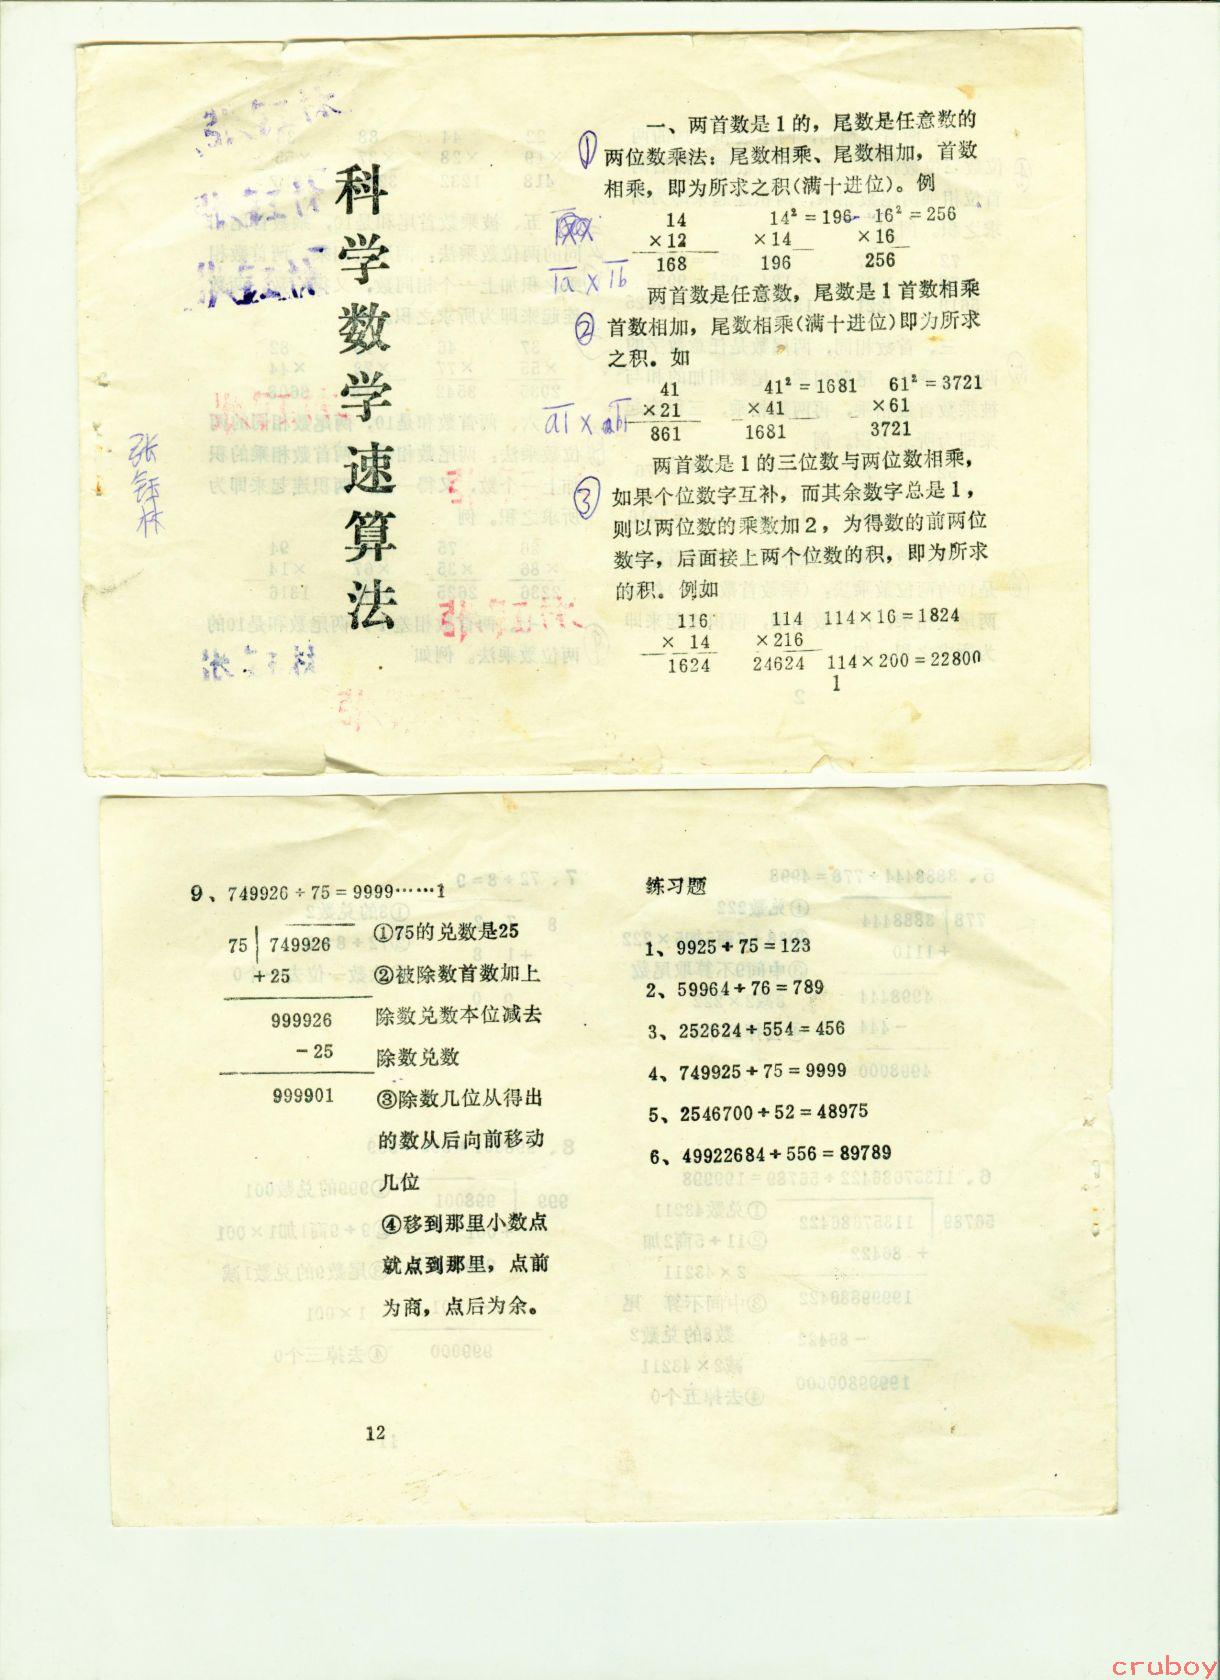 科学数学速算法
张钰林
一、两首数是1的，尾数是任意数的
①
两位数乘法：尾数相乘、尾数相加，首数
相乘，即为所求之积(满十进位)。例
14 14²=196 16²=256
×12 ×14 ×16
168 196 256
1a × 1b
两首数是任意数，尾数是1首数相乘
②
首数相加，尾数相乘(满十进位)即为所求
之积。如
41 41²=1681 61²=3721
×21 ×41 ×61
861 1681 3721
a1 × b1
两首数是1的三位数与两位数相乘，
③
如果个位数字互补，而其余数字总是1，
则以两位数的乘数加2，为得数的前两位
数字，后面接上两个位数的积，即为所求
的积。例如
116 114 114×16=1824
× 14 ×216
1624 24624 114×200=22800
1
9、749926÷75=9999……1
75 749926
+25
999926
-25
999901
①75的兑数是25
②被除数首数加上
除数兑数本位减去
除数兑数
③除数几位从得出
的数从后向前移动
几位
④移到那里小数点
就点到那里，点前
为商，点后为余。
12
练习题
1、9925÷75=123
2、59964÷76=789
3、252624÷554=456
4、749925÷75=9999
5、2546700÷52=48975
6、49922684÷556=89789
cruboy